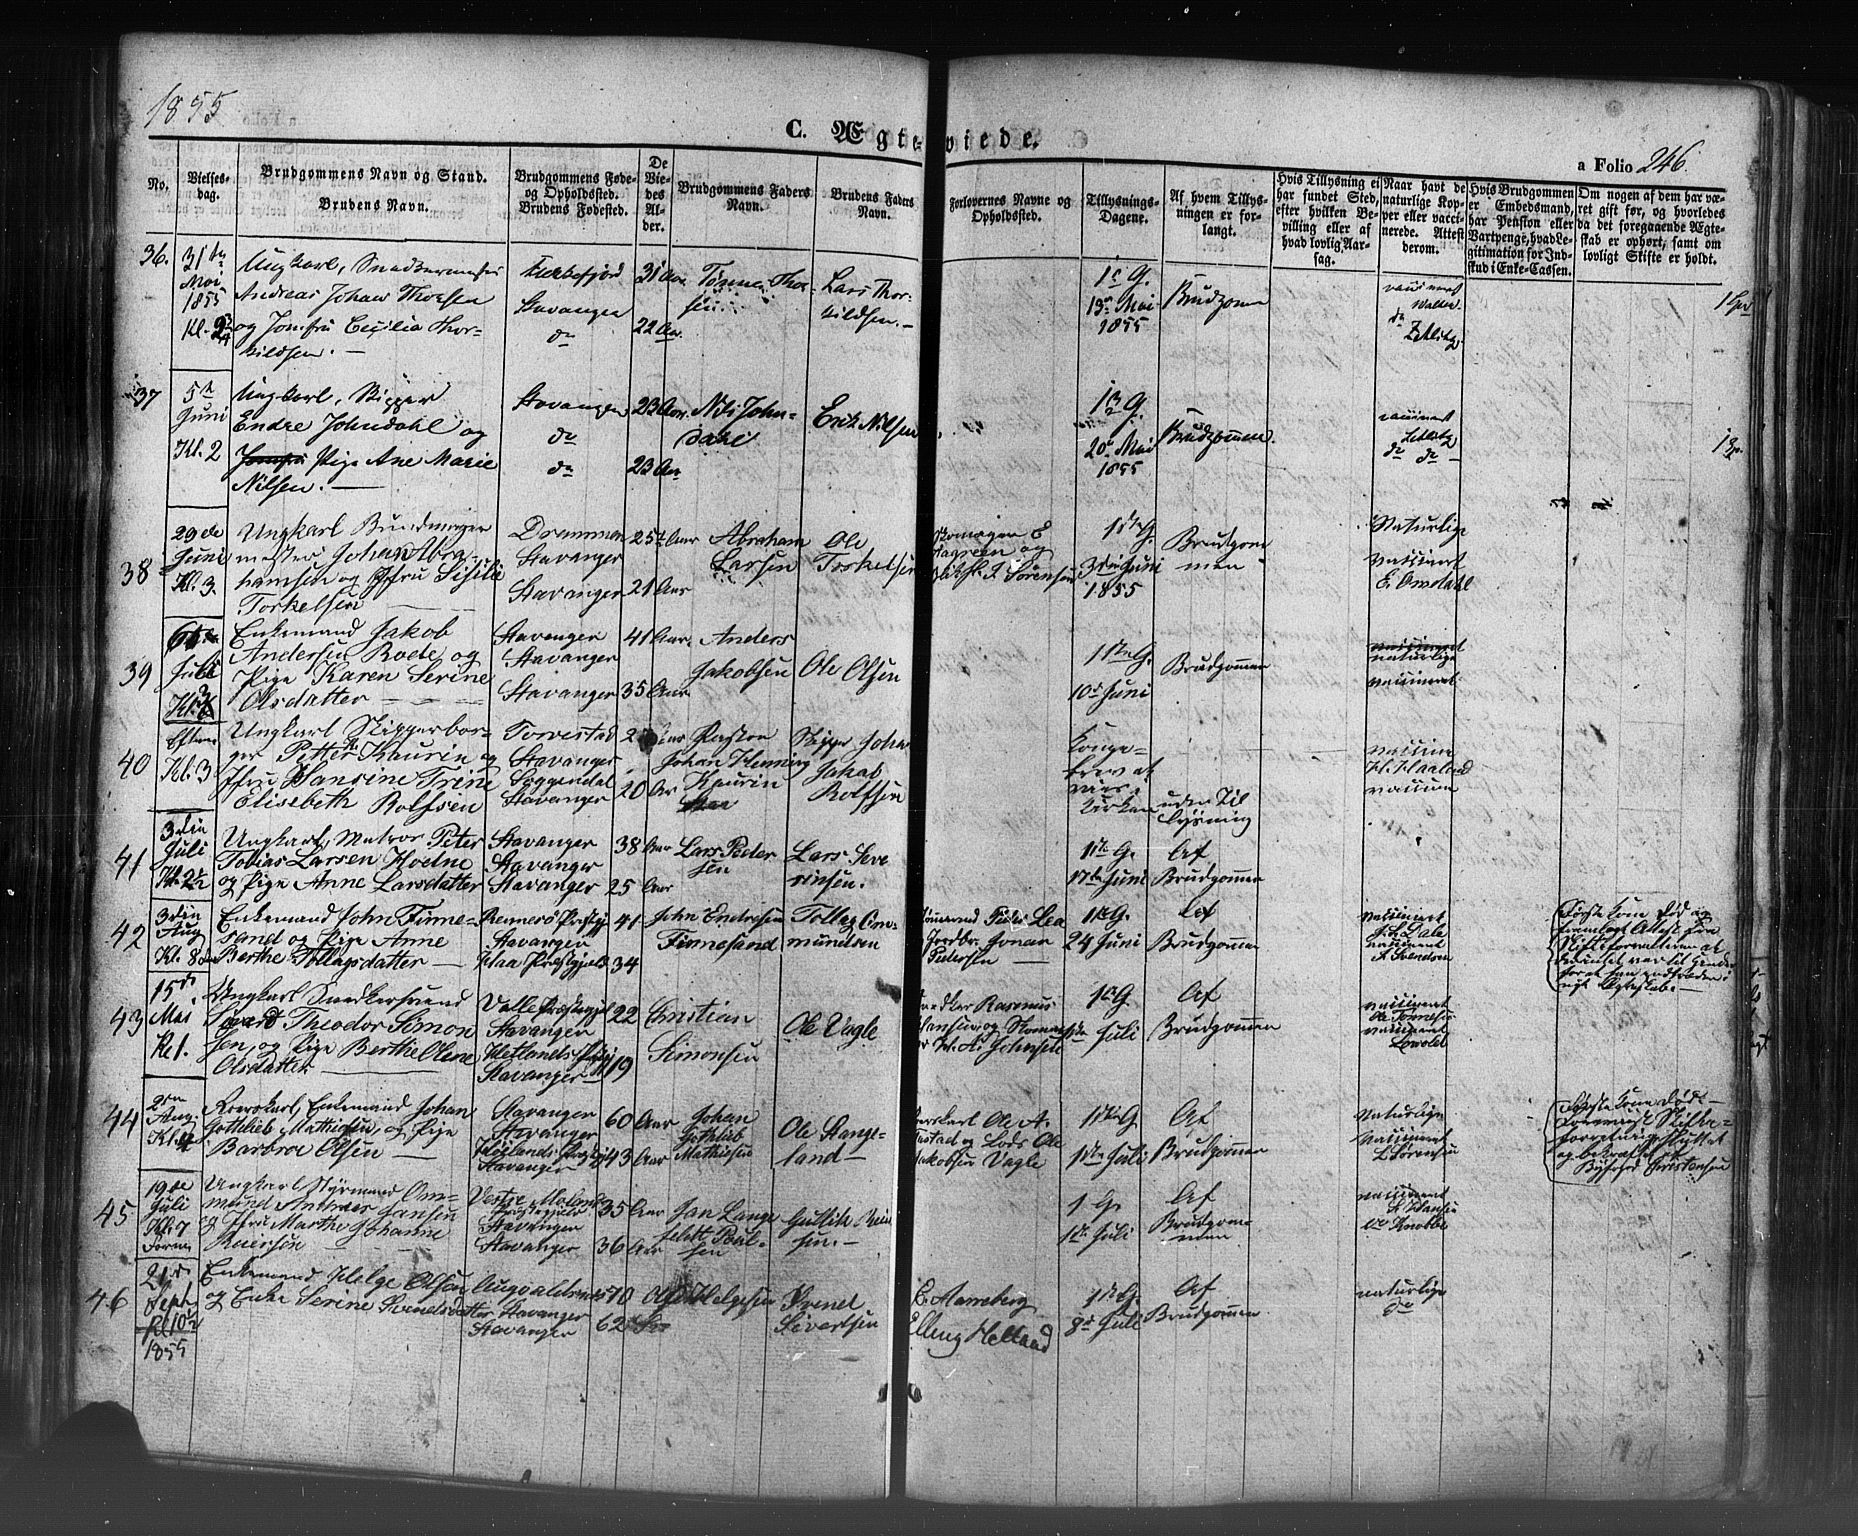 1855
C. Ægteviede.
a Folio 246.
No.
Vielses-
dag.
Brudgommens Navn og Stand.
Brudens Navn.
Brudgommens Føde-
og Opholdssted.
Brudens Fødested.
De
Vie-
des
Al-
der.
Brudgommens Faders
Navn.
Brudens Faders
Navn.
Forlovernes Navne og
Opholdssted.
Tillysnings-
Dagene.
Af hvem Tillys-
ningen er for-
langt.
Hvis Tillysning ei
har fundet Sted,
efter hvilken Be-
villing eller af
hvad lovlig Aar-
sag.
Naar havt de
naturlige Kop-
per eller vacci-
nerede. Attest
derom.
Hvis Brudgommen
er Embedsmand,
har Pension eller
Vartpenge, hvad Le-
gitimation for Ind-
skud i Enke-Cassen.
Om nogen af dem har væ-
ret gift før, og hvorledes
da det foregaaende Ægte-
skab er ophørt, samt om
lovligt Skifte er holdt.
36.
31te
Mai
1855
Kl. 9
Ungkarl, Snedkermester
Andreas Johan Thorsen
og Jomfru Cecilia Thor-
kildsen. —
Flekkefjord
Stavanger
do
31 Aar
22 Aar.
Tønnes Thor-
sen
Lars Thor-
kildsen. —
1e G.
13de Mai
1855
Brudgomen
vaccineret
do
37
5te
Juni
Kl. 2
Ungkarl, Skipper
Endre Johndahl og
Jomfru Pige Ane Marie
Nilsen. —
Stavanger
do
do
23 Aar.
23 Aar
Nils John-
dahl
Erik Nilsen
G.
20de Mai
1855
Brudgommen.
vaccineret
do do —
38
29de
Juni
Kl. 3.
Ungkarl Bundtmager
mester Johan Abra-
hamsen og Jfru Sisilie
Torkelsen
Drammen
Stavanger
Stavanger
25 Aar
21 Aar
Abraham
Larsen
Ole
Torkelsen
Sørensen
1ste G.
3die Juni
1855
Brudgom
men
Naturlige
Vaccineret
E. Omdahl
39
6te
Juli
Enkemand Jakob
Andersen Roete og
Pige Karen Serine
Olsdatter
Stavanger
Stavanger
Stavanger
41 Aar.
35 Aar
Anders
Jakobsen
Ole Olsen
1ste G.
10de Juni
Brudgommen
vaccineret
naturlige
vaccineret
40
Kl. 3
Ungkarl Skipperbor-
ger Petter Kaurin og
Jfru Hansine Trine
Elisebeth Rolfsen
Torvestad
Stavanger
Soggendal
Stavanger
20 Aar
Pastor
Johan Henning
Kaurin
Skipper Johan
Jakob
Rolfsen
Konge-
brev at
vies i
Kirken
uden Til
lysning
vaccine
H. Haaland
vaccine
41
3die
Juli
Kl. 2½
Ungkarl, Matros Peter
Tobias Larsen Hodne
og Pige Anne Larsdatter
Stavanger
Stavanger
Stavanger
38 Aar
25 Aar
Lars Peder
sen
Lars Seve
rinsen.
1ste G.
17de Juni
Af
Brudgommen
42
3die
Aug
Kl. 8
Enkemand John Finne-
sand og Pige Anne
Berthe Tollagsdatter —
Rennesø Prestgj
Stavanger
Prestgjeld
41
34
John Endresen
Finnesand
Tollag Om-
mundsen
Jonan
Pedersen —
1ste G.
24 Juni
Af
Brudgommen
vaccineret
Dale
vaccineret
Svendsen
Første Kone død og
fremlagt Attest fra
Skifteforvalteren at
han indtræder i
nyt Ægteskab. —
43
15de
Mai
Kl. 1.
Ungkarl Snedkersvend
Sivert Theodor Simon
sen, og Pige Berthe Olene
Olsdatter —
Valle Prestgjel
Stavanger
Hetlands Prstgj
Stavanger
22
19
Christian
Simonsen
Ole Vagle
Snedker Rasmus
Hansen og
A. Johnsen
1ste G.
1ste Juli
Af
Brudgommen
vaccineret
Ole Tønnesen
vaccineret
44
2den
Aug.
Kl. 4
Roerskarl, Enkemand Johan
Gottlieb Mathiesen, og Pige
Barbroe Olsen —
Stavanger
Stavanger
Høilands Prestgj
Stavanger
60 Aar
43 Aar
Johan
Gottlieb
Mathiesen
Ole Stange-
land —
Roerskarl Ole A.
Lods Ole
Jakobsen Vagle
1ste G
1ste Juli
Af
Brudgommen
Naturlige
Vaccineret
L. Sørensen
Første Kone død —
og bekræftet af
Byfoged Christensen
45
19de
Juli
Kl. 7
Form
Ungkarl Styrmand Om-
mund Andreas Jansen
og Jfru Marthe Johanne
Reiersen
Vestre Moland
Prestegjeld
Stavanger
Stavanger
35 Aar
36 Aar
Jan Lange
feldt Poul-
sen
Gullik Reier
sen. —
1 G.
1ste Juli
Af
Brudgom
men
vaccineret
Hansen
do Knobbe
46
21de
Sept
Kl 10½
1855
Enkemand Helge Olsen
og Enke Serine Svendsdatter
Augvaldsnes
Stavanger
Stavanger
70
62
Ole Helgesen
Svend
Sivertsen
Elling Helland
1ste G.
8de Juli
Af
Brudgommen
naturlige
do